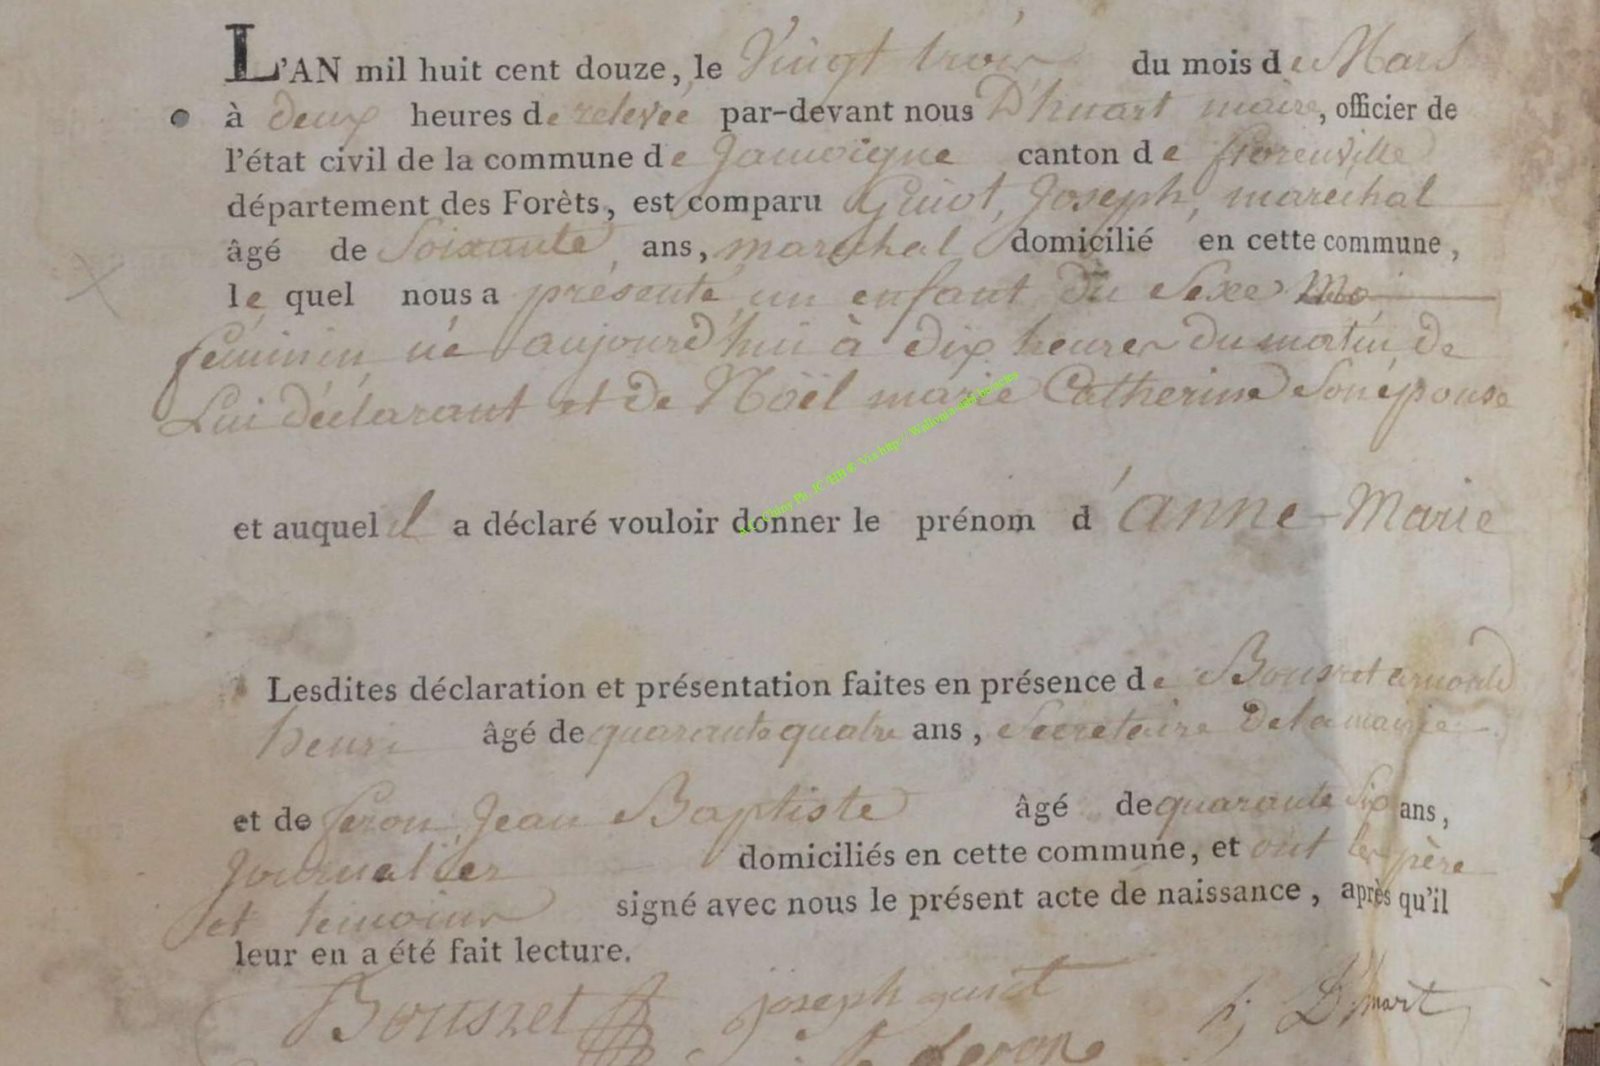 L'AN mil huit cent douze, le Vingt trois du mois de Mars
à deux heures de relevée par-devant nous D'huart maire, officier de
l'état civil de la commune de Jamoigne canton de florenville
département des Forêts, est comparu Guiot, Joseph, marechal
âgé de Soixante ans, marechal domicilié en cette commune,
lequel nous a présenté un enfant du Sexe
féminin né aujourd'hui à dix heures du matin de
Lui déclarant et de Noël marie Catherine Son épouse
et auquel il a déclaré vouloir donner le prénom d'anne-Marie
Lesdites déclaration et présentation faites en présence de Bousret
henri âgé de quarante quatre ans, Secretaire De la mairie
et de feron Jean Baptiste âgé de quarante Six ans,
Journalier domiciliés en cette commune, et ont les père
et temoins signé avec nous le présent acte de naissance, après qu'il
leur en a été fait lecture.
Bousret joseph guiot D'huart
feron